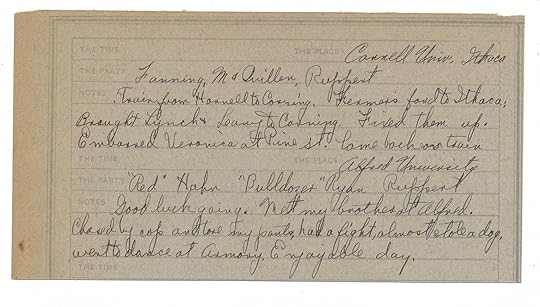 THE TIME THE PLACE Cornell Univ. Ithaca
THE PARTY Fanning, McQuillen, Ruppert
NOTES Train from Hornell to Corning. Kremers ford to Ithaca.
Brought Lynch & Leary to Corning. Fixed them up.
Embarred Veronica at Pine St. Come back on train
THE TIME THE PLACE Alfred University
THE PARTY "Red" Hahn "Bulldozer" Ryan Ruppert
NOTES Good luck going. Met my brother at Alfred.
Chased by cop and tore my pants, had a fight, almost stole a dog,
went to dance at Armory, Enjoyable day.
THE TIME